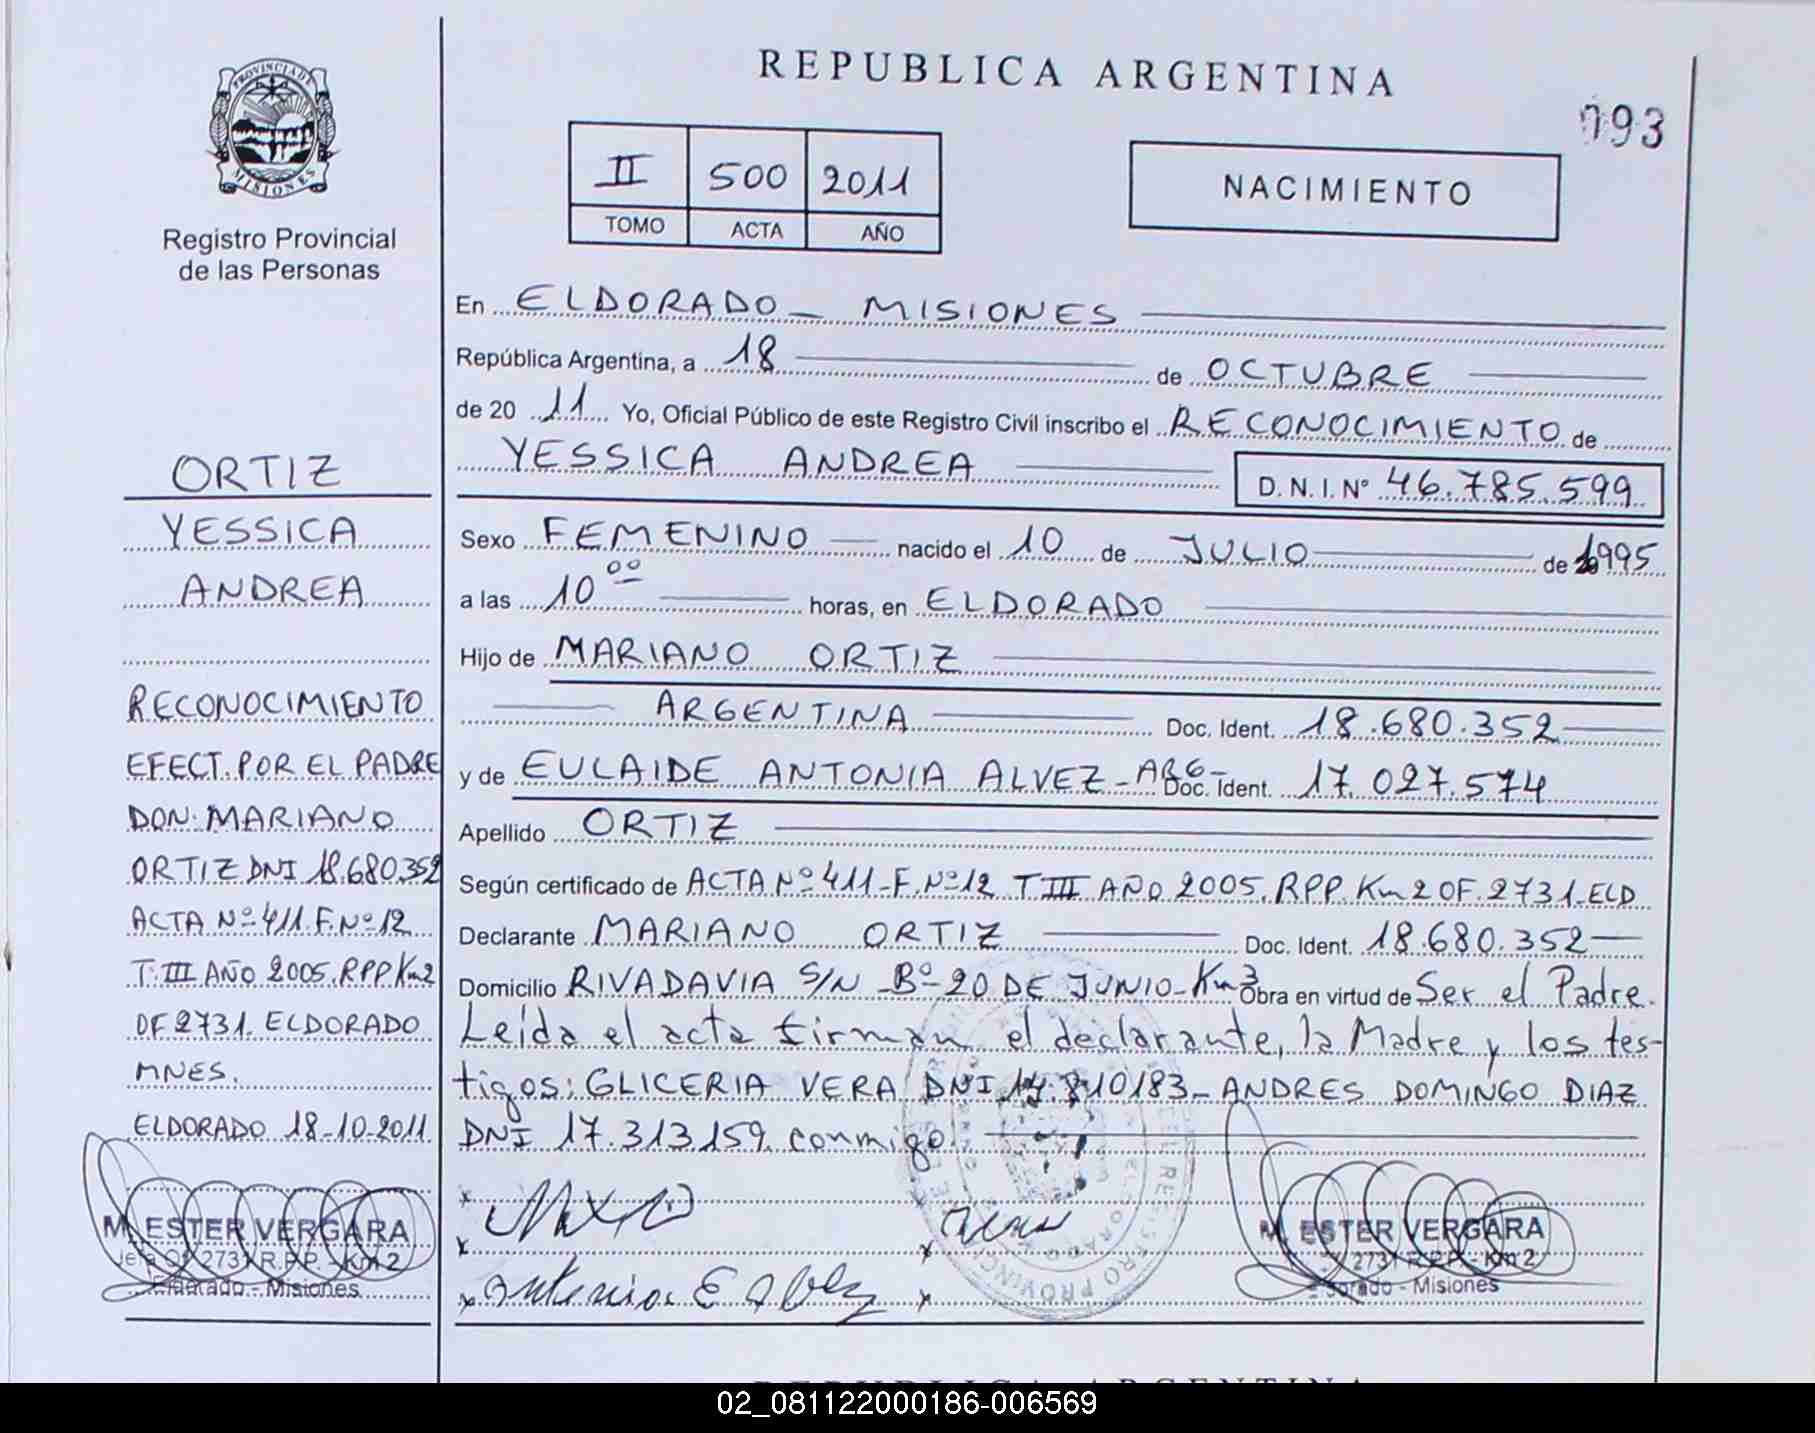 REPUBLICA ARGENTINA
093
PROVINCIA DE MISIONES
Registro Provincial
de las Personas
II 500 2011
TOMO ACTA AÑO
NACIMIENTO
En ELDORADO - MISIONES
República Argentina, a 18 de OCTUBRE
de 2011 Yo, Oficial Público de este Registro Civil inscribo el RECONOCIMIENTO de
YESSICA ANDREA D.N.I.Nº 46.785.599
Sexo FEMENINO nacido el 10 de JULIO de 1995
a las 10 00 horas, en ELDORADO
Hijo de MARIANO ORTIZ
ARGENTINA Doc. Ident. 18.680.352
y de EULAIDE ANTONIA ALVEZ - ARG - Doc. Ident. 17.027.574
Apellido ORTIZ
Según certificado de ACTA Nº 411-F.Nº12 T III AÑO 2005. RPP. Km2 OF. 2731-ELD
Declarante MARIANO ORTIZ Doc. Ident. 18.680.352
Domicilio RIVADAVIA S/N - Bº-20 DE JUNIO-Km3 Obra en virtud de Ser el Padre.
Leída el acta firman el declarante, la Madre y los tes-
tigos: GLICERIA VERA DNI 810183- ANDRES DOMINGO DIAZ
DNI 17.313.159. conmigo.
ORTIZ
YESSICA
ANDREA
RECONOCIMIENTO
EFECT. POR EL PADRE
DON: MARIANO
ORTIZ DNI 18.680.352
ACTA Nº 411.F.Nº12
T. III AÑO 2005. RPP Km2
OF 2731. ELDORADO
MNES.
ELDORADO 18-10-2011
M. ESTER VERGARA
Jefa Of. 2731 R.P.P. - Km 2
Eldorado - Misiones
Antonia E Alvez
M. ESTER VERGARA
2731 R.P.P. - Km 2
Eldorado - Misiones
REPUBLICA ARGENTINA
02_081122000186-006569